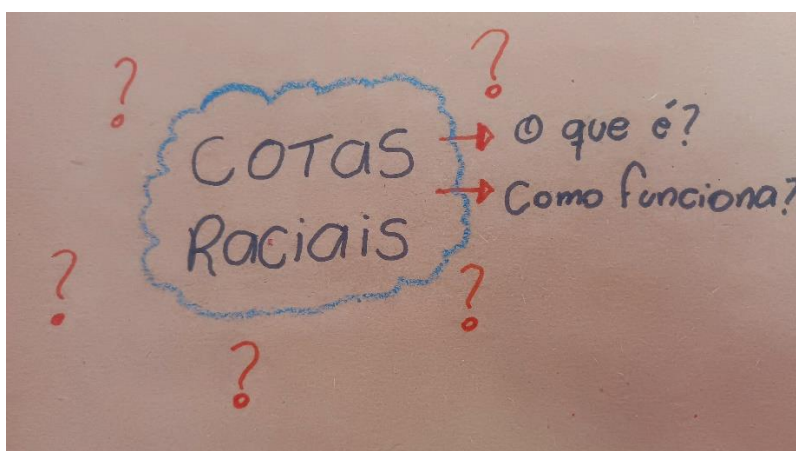 ?
?
COTAS
Raciais
O que é?
Como funciona?
?
?
?